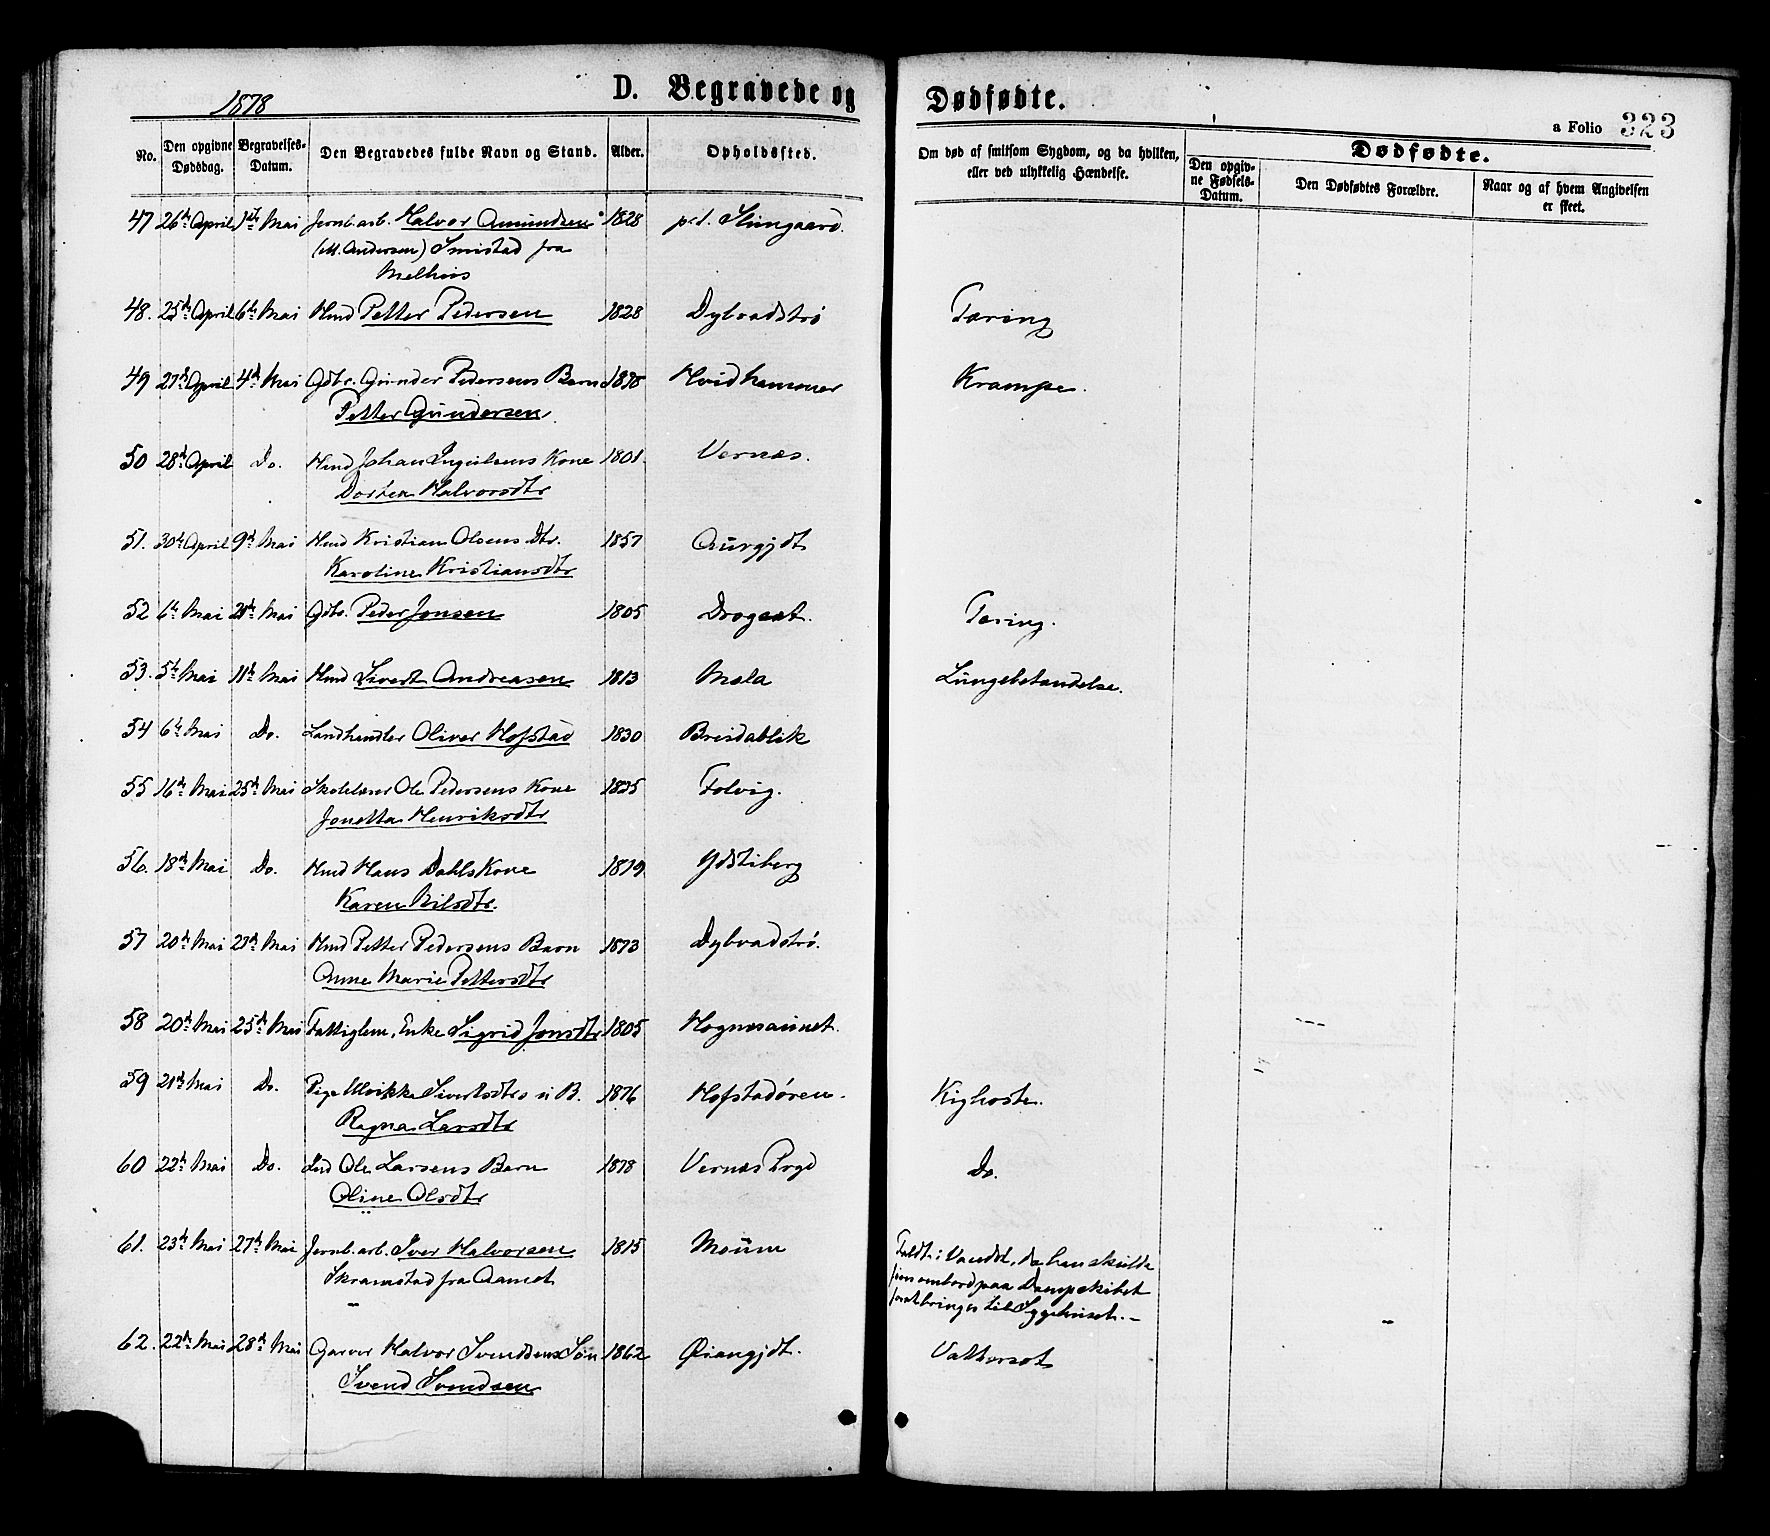 1878
D. Begravede og Dødfødte.
a Folio 323
No. Den opgivne Dødsdag. Begravelses-Datum. Den Begravedes fulde Navn og Stand. Alder. Opholdssted. Om død af smitsom Sygdom, og da hvilken, eller ved ulykkelig Hændelse. Den opgivne Fødsels-Datum. Dødfødte. Den Dødfødtes Forældre. Naar og af hvem Angivelsen er skeet.
47 26de April 1ste Mai Jernb.arb. Halvor Amundsen 1828 p.t.
(M. Andersen) Smistad fra
Melhus
48. 25de April 6te Mai Hmd Petter Pedersen 1828 Dybvadstrø Tæring
49 27de April 4de Mai Gdbr. Gunder Pedersens Barn 1878 Hvidhammer Krampe.
Petter Gundersen.
50 28de April Do. Hmd Johan Ingvilsens Kone 1801. Vernæs.
Dorthea Halvorsdtr
51. 30te April 9de Mai Hmd Kristian Olsens Dtr. 1857 Aurgjdt
Karoline Kristiansdtr
52 6te Mai Mai Gdbr. Peder Jonsen 1805 Drogset. Tæring.
53. 5te Mai 11te Mai Hmd Sivert Andreasen 1813 Mæla Lungebetændelse.
54 6te Mai Do. Landhandler Oliver Hofstad 1830 Breidablik
55 16de Mai 25de Mai Skolelærer Ole Pedersens Kone 1835 Folvig.
Jonetta Henriksdtr
56. 18de Mai Do. Hmd Hans Dahls Kone 1819 Ydstiberg
Karen Nilsdtr.
57 20de Mai 27de Mai Hmd Petter Pedersens Barn 1873 Dybvadstrø.
Anne Marie Pettersdtr
58 20de Mai 25de Mai Fattiglem, Enke Sigrid Jonsdtr 1805 Hognesaunet.
59 21de Mai Do. Pige Ulrikke Sivertsdtrs u B. 1876 Hofstadøren. Kighoste.
Ragna Larsdtr
60 22de Mai Do. Ole Larsens Barn 1878 Vernæs Prgd Do.
Oline Olsdtr
61. 23de Mai 27de Mai Jernb.arb. Iver Halvorsen 1815 Moum Faldt i Vandet, da han skulde
Skramstad fra Aamot ombord paa Dampskibet
for at bringes til Sygehuset. -
62. 22de Mai 28de Mai Garver Halvor Svendsens Søn 1862 Øiangjdt. Vattersot
Svend Svendsen